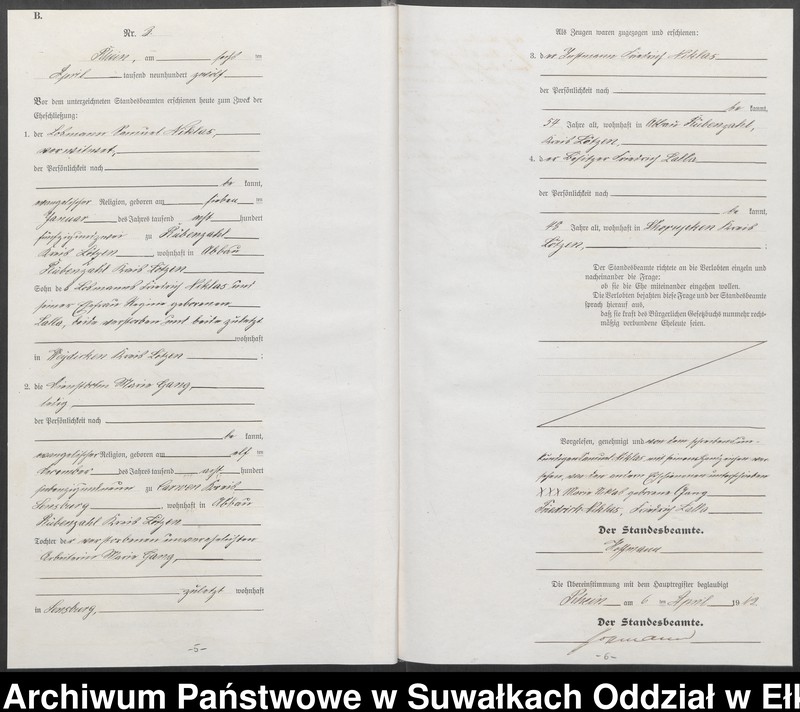 B.
Nr. 3.
Rhein, am sechs ten
April tausend neunhundert zwölf
Vor dem unterzeichneten Standesbeamten erschienen heute zum Zweck der
Eheschließung:
1. der Losmann Samuel Niklas,
verwitwet,
der Persönlichkeit nach
be kannt,
evangelischer Religion, geboren am sieben ten
Januar des Jahres tausend acht hundert
zu Rübenzahl
Kreis Lötzen, wohnhaft in Abbau
Rübenzahl Kreis Lötzen
Sohn des Losmanns Friedrich Niklas und
seiner Ehefrau Regine geborenen
Lalla, beide verstorben und beide zuletzt
wohnhaft
in Kreis Lötzen ;
2. die Dienstbotin Marie Gang,
ledig
der Persönlichkeit nach
be kannt,
evangelischer Religion, geboren am elf ten
des Jahres tausend acht hundert
zu Carwen Kreis
Sensburg, wohnhaft in Abbau
Rübenzahl Kreis Lötzen
Tochter der verstorbenen unverehelichten
Arbeiterin Marie Gang,
zuletzt wohnhaft
in Sensburg,
-5-
Als Zeugen waren zugezogen und erschienen:
3. der Instmann Friedrich Niklas
der Persönlichkeit nach
be kannt,
Jahre alt, wohnhaft in Abbau Rübenzahl,
Kreis Lötzen,
4. der Besitzer Friedrich Lalla
der Persönlichkeit nach
be kannt,
48 Jahre alt, wohnhaft in Skorupken Kreis
Lötzen, ;
Der Standesbeamte richtete an die Verlobten einzeln und
nacheinander die Frage:
ob sie die Ehe miteinander eingehen wollen.
Die Verlobten bejahten diese Frage und der Standesbeamte
sprach hierauf aus,
daß sie kraft des Bürgerlichen Gesetzbuchs nunmehr recht-
mäßig verbundene Eheleute seien.
Vorgelesen, genehmigt und von dem schreibensun-
kundigen Samuel Niklas mit seinem Handzeichen ver-
sehen, von den andern Erschienenen unterschrieben
XXX Marie Niklas geborene Gang
Friedrich Niklas, Friedrich Lalla
Der Standesbeamte.
Die Übereinstimmung mit dem Hauptregister beglaubigt
Rhein am 6 ten April 19 12.
Der Standesbeamte.
-6-
Archiwum Państwowe w Suwałkach Oddział w Ełk